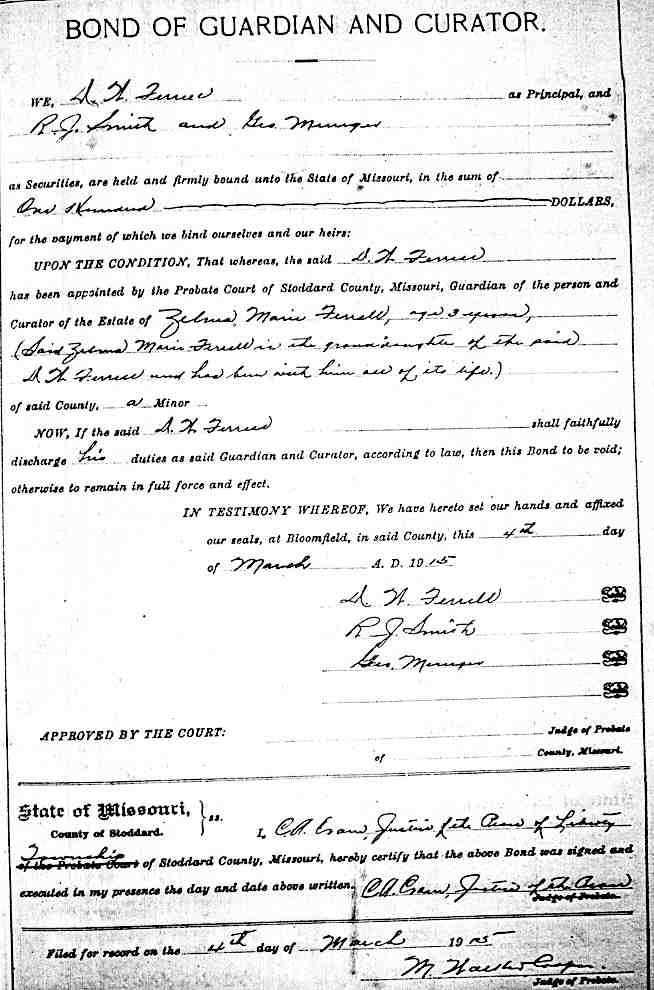 BOND OF GUARDIAN AND CURATOR.
WE, D. N. Ferrell as Principal, and
R. J. Smith and Geo.
as Securities, are held and firmly bound unto the State of Missouri, in the sum of
One Hundred DOLLARS,
for the payment of which we bind ourselves and our heirs:
UPON THE CONDITION, That whereas, the said D. N. Ferrell
has been appointed by the Probate Court of Stoddard County, Missouri, Guardian of the person and
Curator of the Estate of Zelma Marie Ferrell, age 3 years,
(Said Zelma Marie Ferrell is the granddaughter of the said
D N Ferrell and has been with him all of its life.)
of said County, a Minor
NOW, If the said D. N. Ferrell shall faithfully
discharge his duties as said Guardian and Curator, according to law, then this Bond to be void;
otherwise to remain in full force and effect.
IN TESTIMONY WHEREOF, We have hereto set our hands and affixed
our seals, at Bloomfield, in said County, this 4th day
of March A. D. 1915
D. N. Ferrell
R. J. Smith
Geo.
APPROVED BY THE COURT: Judge of Probate
of County, Missouri.
State of Missouri, } ss.
County of Stoddard.
I, C. A. Crain, Justice of the Peace of Liberty
Township
of the Probate Court of Stoddard County, Missouri, hereby certify that the above Bond was signed and
executed in my presence the day and date above written. C. A. Crain, Justice of the Peace
Judge of Probate.
Filed for record on the 4th day of March 1915
M. Walker Cooper
Judge of Probate.